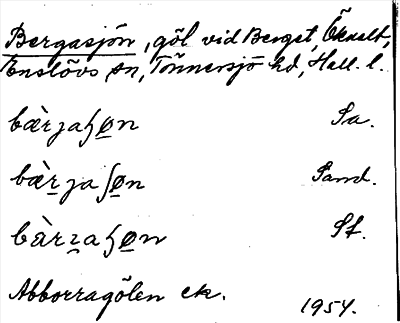 Bergasjön, göl vid Berget, Öknalt,
Enslövs sn, Tönnersjö hd, Hall. l.
bærjaʃøn Sa.
bæ̀rjaʃøn Sand.
bàrʒaʃøn St.
Abborragölen ek.
1954.